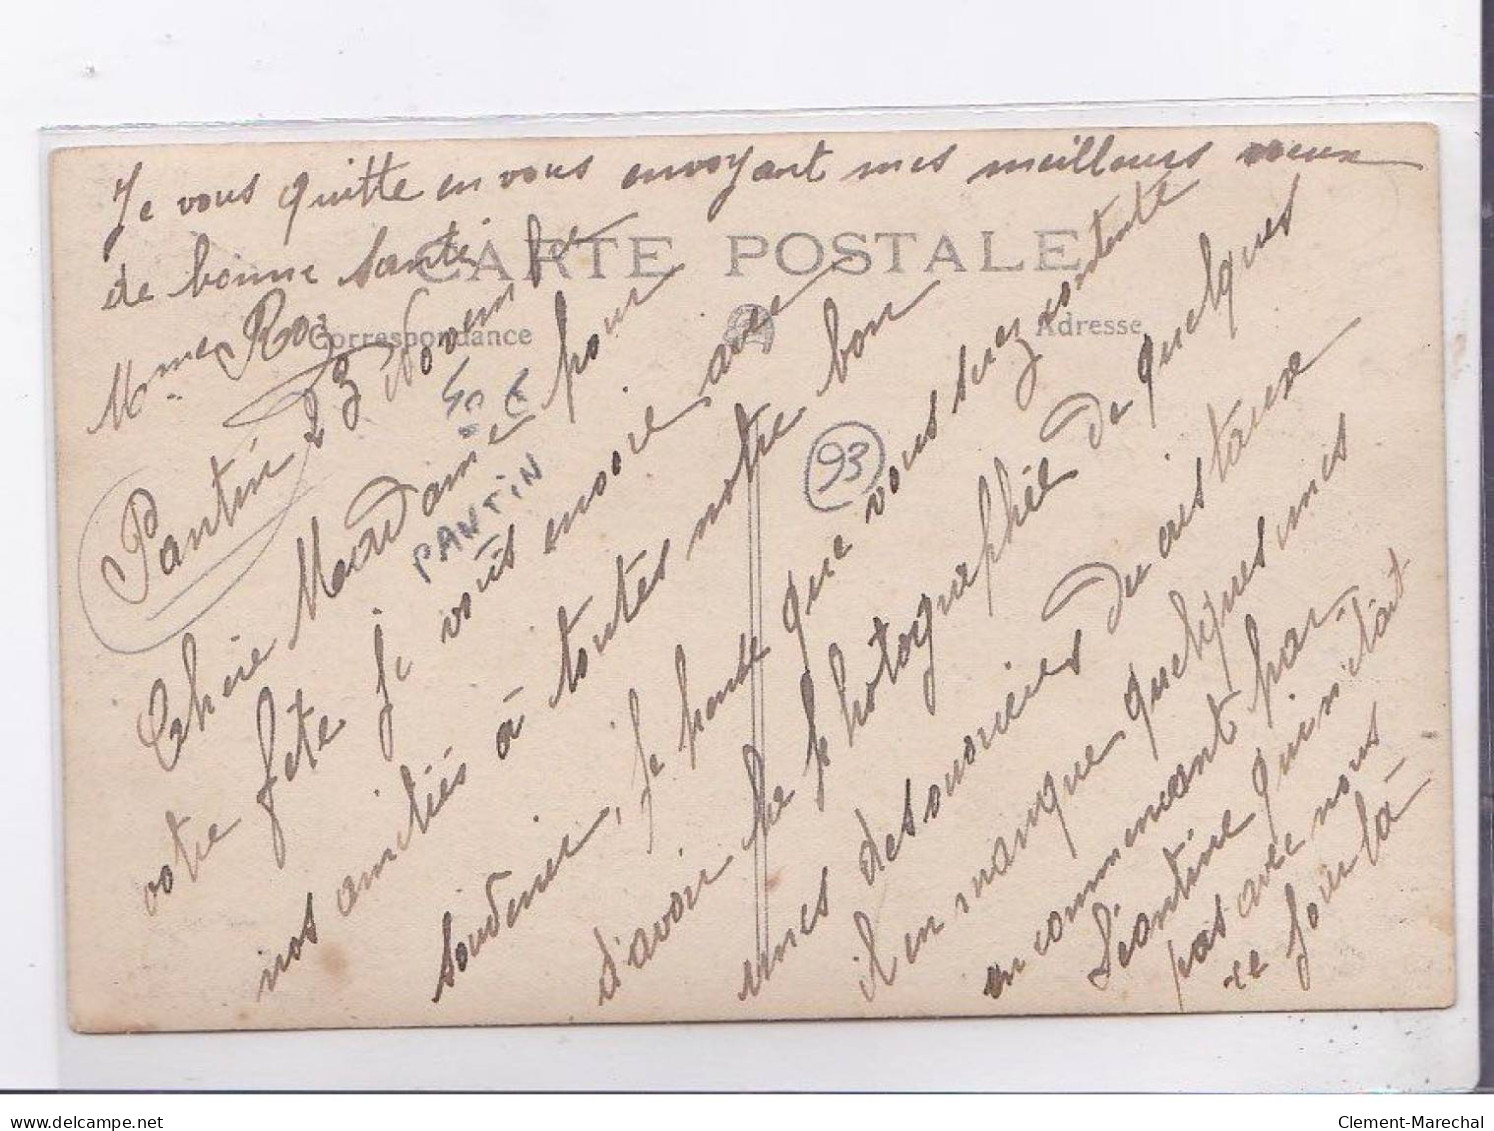 Je vous quitte en vous envoyant mes meilleurs vœux
de bonne santé
Mme Roz
CARTE POSTALE
Correspondance
Adresse
40 €
PANTIN
93
Pantin 23 Novembre
Chère Madame pour
votre fête je vous envoie avec
nos amitiés à toutes notre bon
souvenir, je pense que vous serez contente
d'avoir la photographie de quelques
unes des ouvrières du
il en manque quelques unes
en commencant par
Léontine qui n'était
pas avec nous
ce jour là
delcampe.net
Clement-Marechal